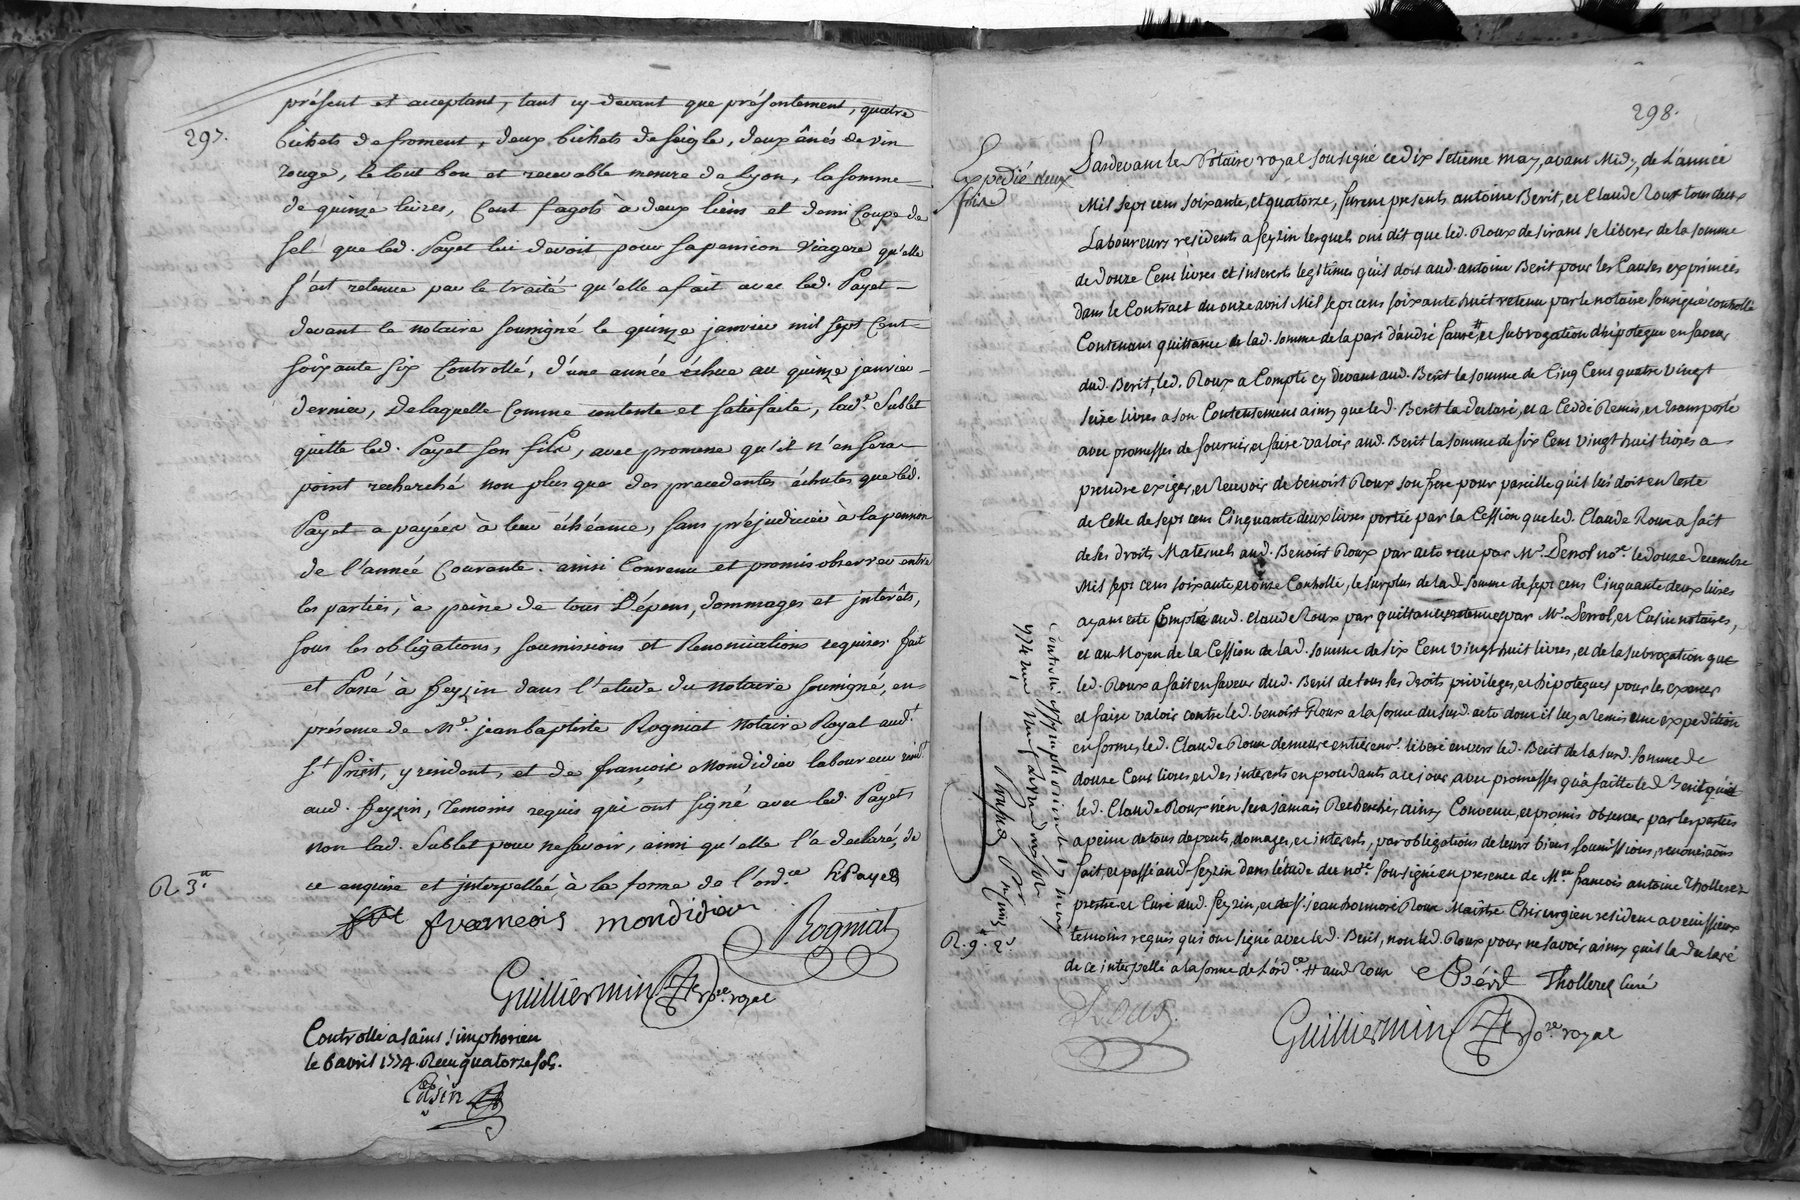 297.
présent et acceptant, tant cy devant que présentement, quatre
bichets de froment, deux bichets de seigle, deux ânés de vin
rouge, le tout bon et recevable mesure de Lyon, la somme
de quinze livres, Cent fagots à deux liens et demi Coupe de
sel que led. Payet lui devoit pour sa pension Viagere qu'elle
s'est retenue par le traité qu'elle a fait avec led. Payet
devant le notaire soussigné le quinze janvier mil sept Cent
soixante six Controllé, d'une année échue au quinze janvier
dernier, De laquelle Comme contente et satisfaite, lad.e Sublet
quitte led. Payet son fils, avec promesse qu'il n'en sera
point recherché non plus que des precedentes échutes que led.
Payet a payées à leur échéance, sans préjudicier à la pension
de l'année Courante. ainsi Convenu et promis observer entre
les parties, à peine de tous Dépens, dommages et jnterêts,
sous les obligations, soumissions et Renonciations requises. fait
et Passé à feyzin dans l'etude du notaire soussigné, en
présence de M.e jean baptiste Rogniat Notaire Royal aud.t
S.t Priest, y resident, et de françois Mondidier laboureur resid.t
aud. feyzin, temoins requis qui ont signé avec led. Payet
non lad. Sublet pour ne savoir, ainsi qu'elle l'a declaré, de
ce enquise et jnterpellée à la forme de l'ord.ce h Payet
R. 3.tt
françois mondidier
Rogniat
Guilliermin no.re royal
Controllé a saint simphorien
le 6 avril 1774. Recu quatorze sols.
Casin
298.
Expedié deux
fois
Pardevant le Notaire royal soussigné ce dix setieme may, avant Midy, de L'année
Mil sept cens soixante, et quatorze, furent presents antoine Berit, et Claude Roux tous deux
Laboureurs residents a feyzin lesquels ont dit que led. Roux desirant se liberer de la somme
de douze Cent livres et Interests legitimes qu'il doit aud. antoine Berit pour les Causes exprimées
dans le Contract du onze avril Mil sept cens soixante huit retenu par le notaire soussigné controllé
Contenant quittance de lad. somme de la part d'andré fauré # et subrogation d'hipoteque en faveur
dud. Berit, led. Roux a Compté cy devant aud. Berit la somme de Cinq Cens quatre vingt
seize livres a son Contentement ainsy que led. Berit la declaré, et a Ceddé Remis, et transporté
avec promesses de fournir et faire valoir aud. Berit la somme de six Cent vingt huit livres a
prendre exiger, et Recevoir de benoist Roux son frere pour pareille qu'il lui doit en Reste
de Celle de sept cens Cinquante deux livres portée par la Cession que led. Claude Roux a fait
de ses droits Maternels aud. Benoist Roux par acte recu par M.e no.re le douze Decembre
Mil sept cens soixante, et onze Controllé, le surplus de lad. somme de sept cens Cinquante deux livres
ayant été Compté aud. claude Roux par quittances retenues par M.e et Casin notaires,
et au Moyen de la Cession de lad. somme de six Cent vingt huit livres, et de la subrogation que
led. Roux a fait en faveur dud. Berit de tous ses droits privileges, et hipoteques pour les exercer
et faire valoir contre led. benoist Roux a la forme du sud. acte dont il luy a Remis une expedition
en formes, led. Claude Roux demeure entierem.t liberé envers led. Berit de la sud. somme de
douze Cent livres et des interests en procedants a ce jour, avec promesses qu'a faitte led Berit qu'il
led. Claude Roux n'en sera jamais Recherché, ainsy Convenu, et promis observer par les parties
a peine de tous depents, domages, et interests, par obligations de leurs biens, soumissions, renonciaõns
fait, et passé aud. feyzin dans l'étude du no.re soussigné en presence de M.re françois antoine Tholleret
prestre et Curé dud. feyzin, et de s.r jean honnoré Roux Maitre Chirurgien resident a venissieux
temoins requis qui ont signé avec led. Berit, non led. Roux pour ne savoir ainsy qu'il la declaré
de ce interpellé a la forme de L'ord.ce # aud. Roux
Bérit Tholleret Curé
Roux
Guilliermin no.re royal
R. 9.tt 2s
Controllé a st simphorien le 17 may
1774